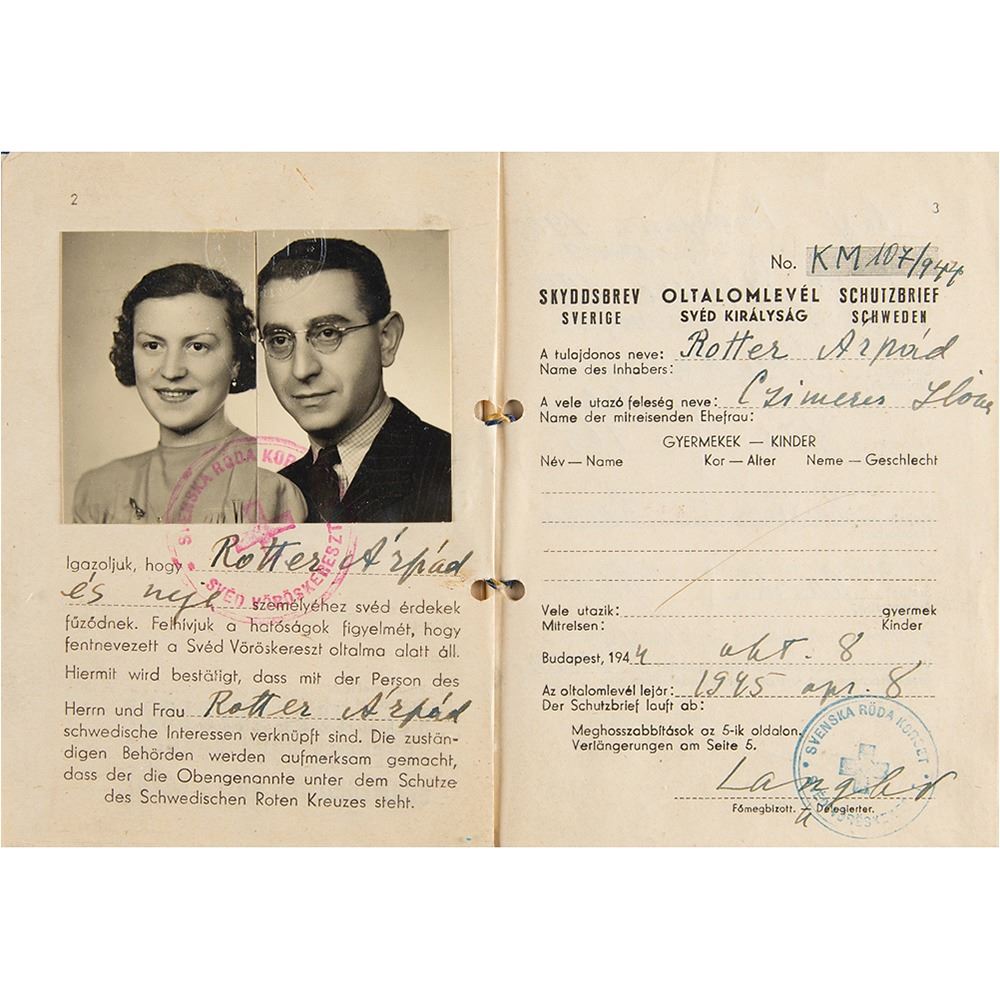 2
SVENSKA RÖDA KOR
SVÉD VÖRÖSKERESZT
Igazoljuk, hogy Rotter Árpád
és neje személyéhez svéd érdekek
fűződnek. Felhívjuk a hatóságok figyelmét, hogy
fentnevezett a Svéd Vöröskereszt oltalma alatt áll.
Hiermit wird bestätigt, dass mit der Person des
Herrn und Frau Rotter Árpád
schwedische Interessen verknüpft sind. Die zustän-
digen Behörden werden aufmerksam gemacht,
dass der die Obengenannte unter dem Schutze
des Schwedischen Roten Kreuzes steht.
3
No. KM 107/944
SKYDDSBREV OLTALOMLEVÉL SCHUTZBRIEF
SVERIGE SVÉD KIRÁLYSÁG SCHWEDEN
A tulajdonos neve: Rotter Árpád
Name des Inhabers:
A vele utazó feleség neve: Czimeres Ilona
Name der mitreisenden Ehefrau:
GYERMEKEK — KINDER
Név — Name Kor — Alter Neme — Geschlecht
Vele utazik: gyermek
Mitreisen: Kinder
Budapest, 1944 okt. 8
Az oltalomlevél lejár: 1945 apr. 8
Der Schutzbrief lauft ab:
Meghosszabbítások az 5-ik oldalon.
Verlängerungen am Seite 5.
SVENSKA RÖDA KORSET
Főmegbízott. — Delegierter.